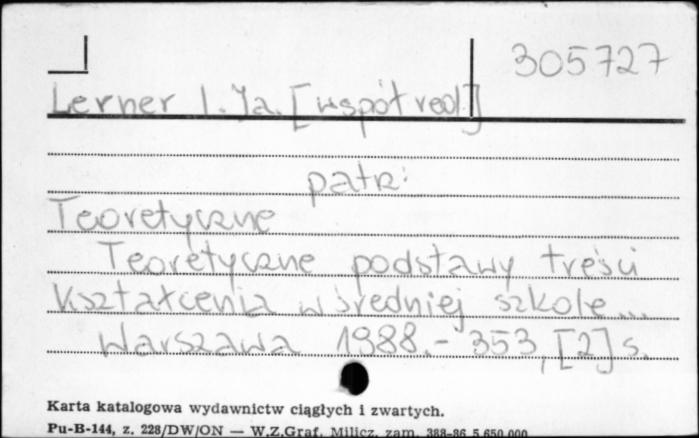 305727
Lerner I. Ja. [współred]
patrz:
Teoretyczne
Teoretyczne podstawy treści
kształcenia w średniej szkole...
Warszawa 1988.- 353, [2] s.
Karta katalogowa wydawnictw ciągłych i zwartych.
Pu-B-144, z. 228/DW/ON — W.Z.Graf. Milicz, zam. 388-86 5 650 000